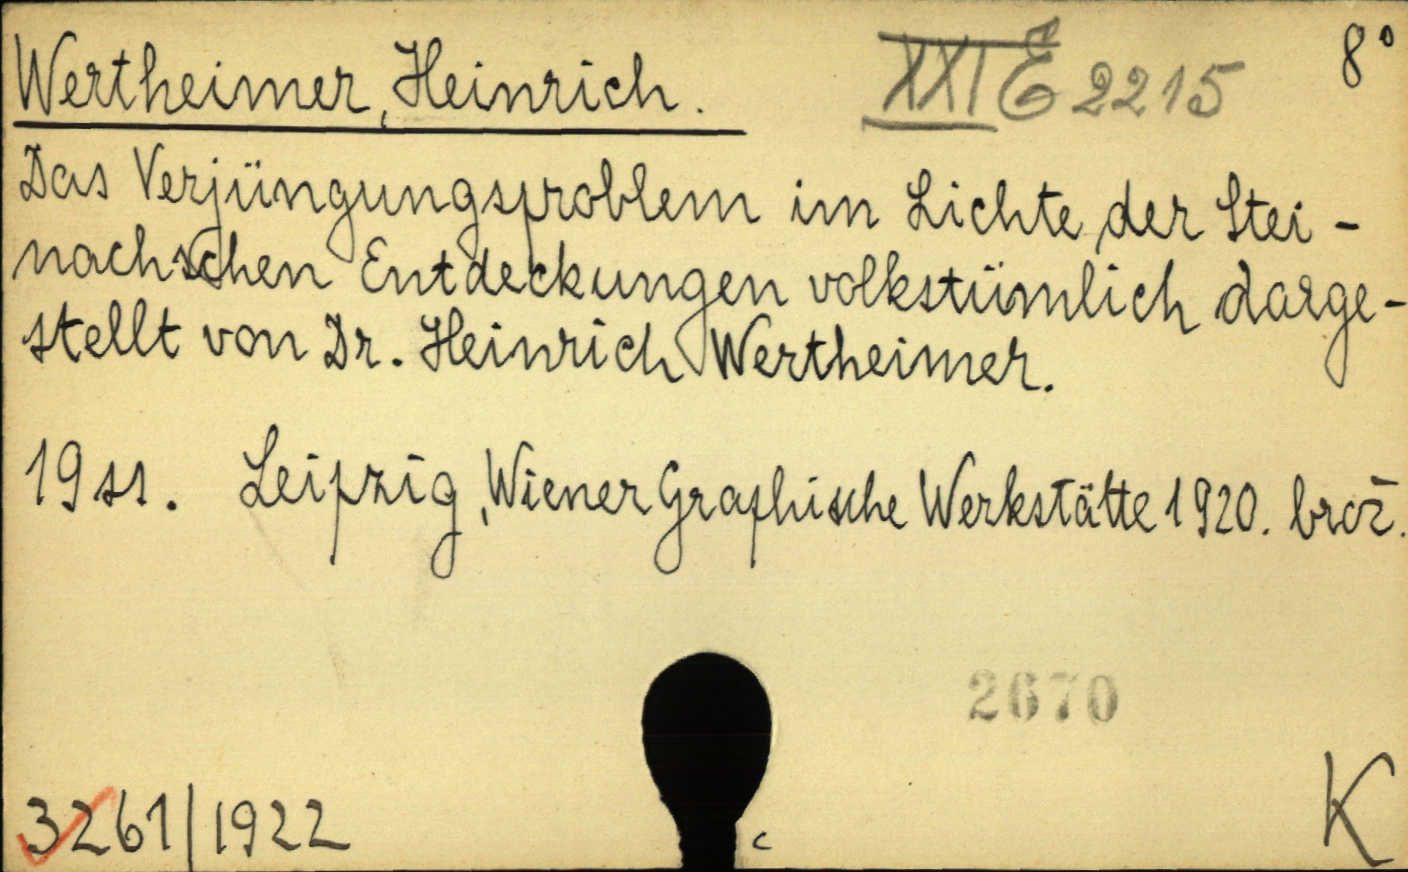 Wertheimer, Heinrich. XXI E 2215 8°
Das Verjüngungsproblem im Lichte der Stei-
nachschen Entdeckungen volkstümlich darge-
stellt von Dr. Heinrich Wertheimer.
19 ss. Leipzig, Wiener Graphische Werkstätte 1920. bros̄.
2670
3261/1922 c K